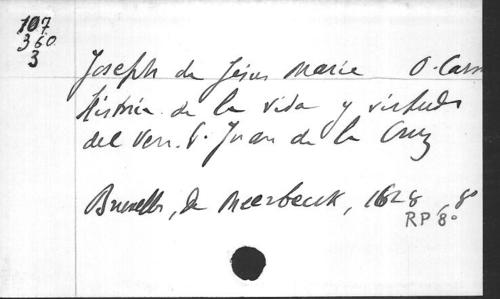 107
360
3
Joseph de Jésus Marie O. Carm
Historia de la vida y virtudes
del Ven. P. Juan de la Cruz
Bruxelles, de Meerbeeck, 1628 8º
RP 8º